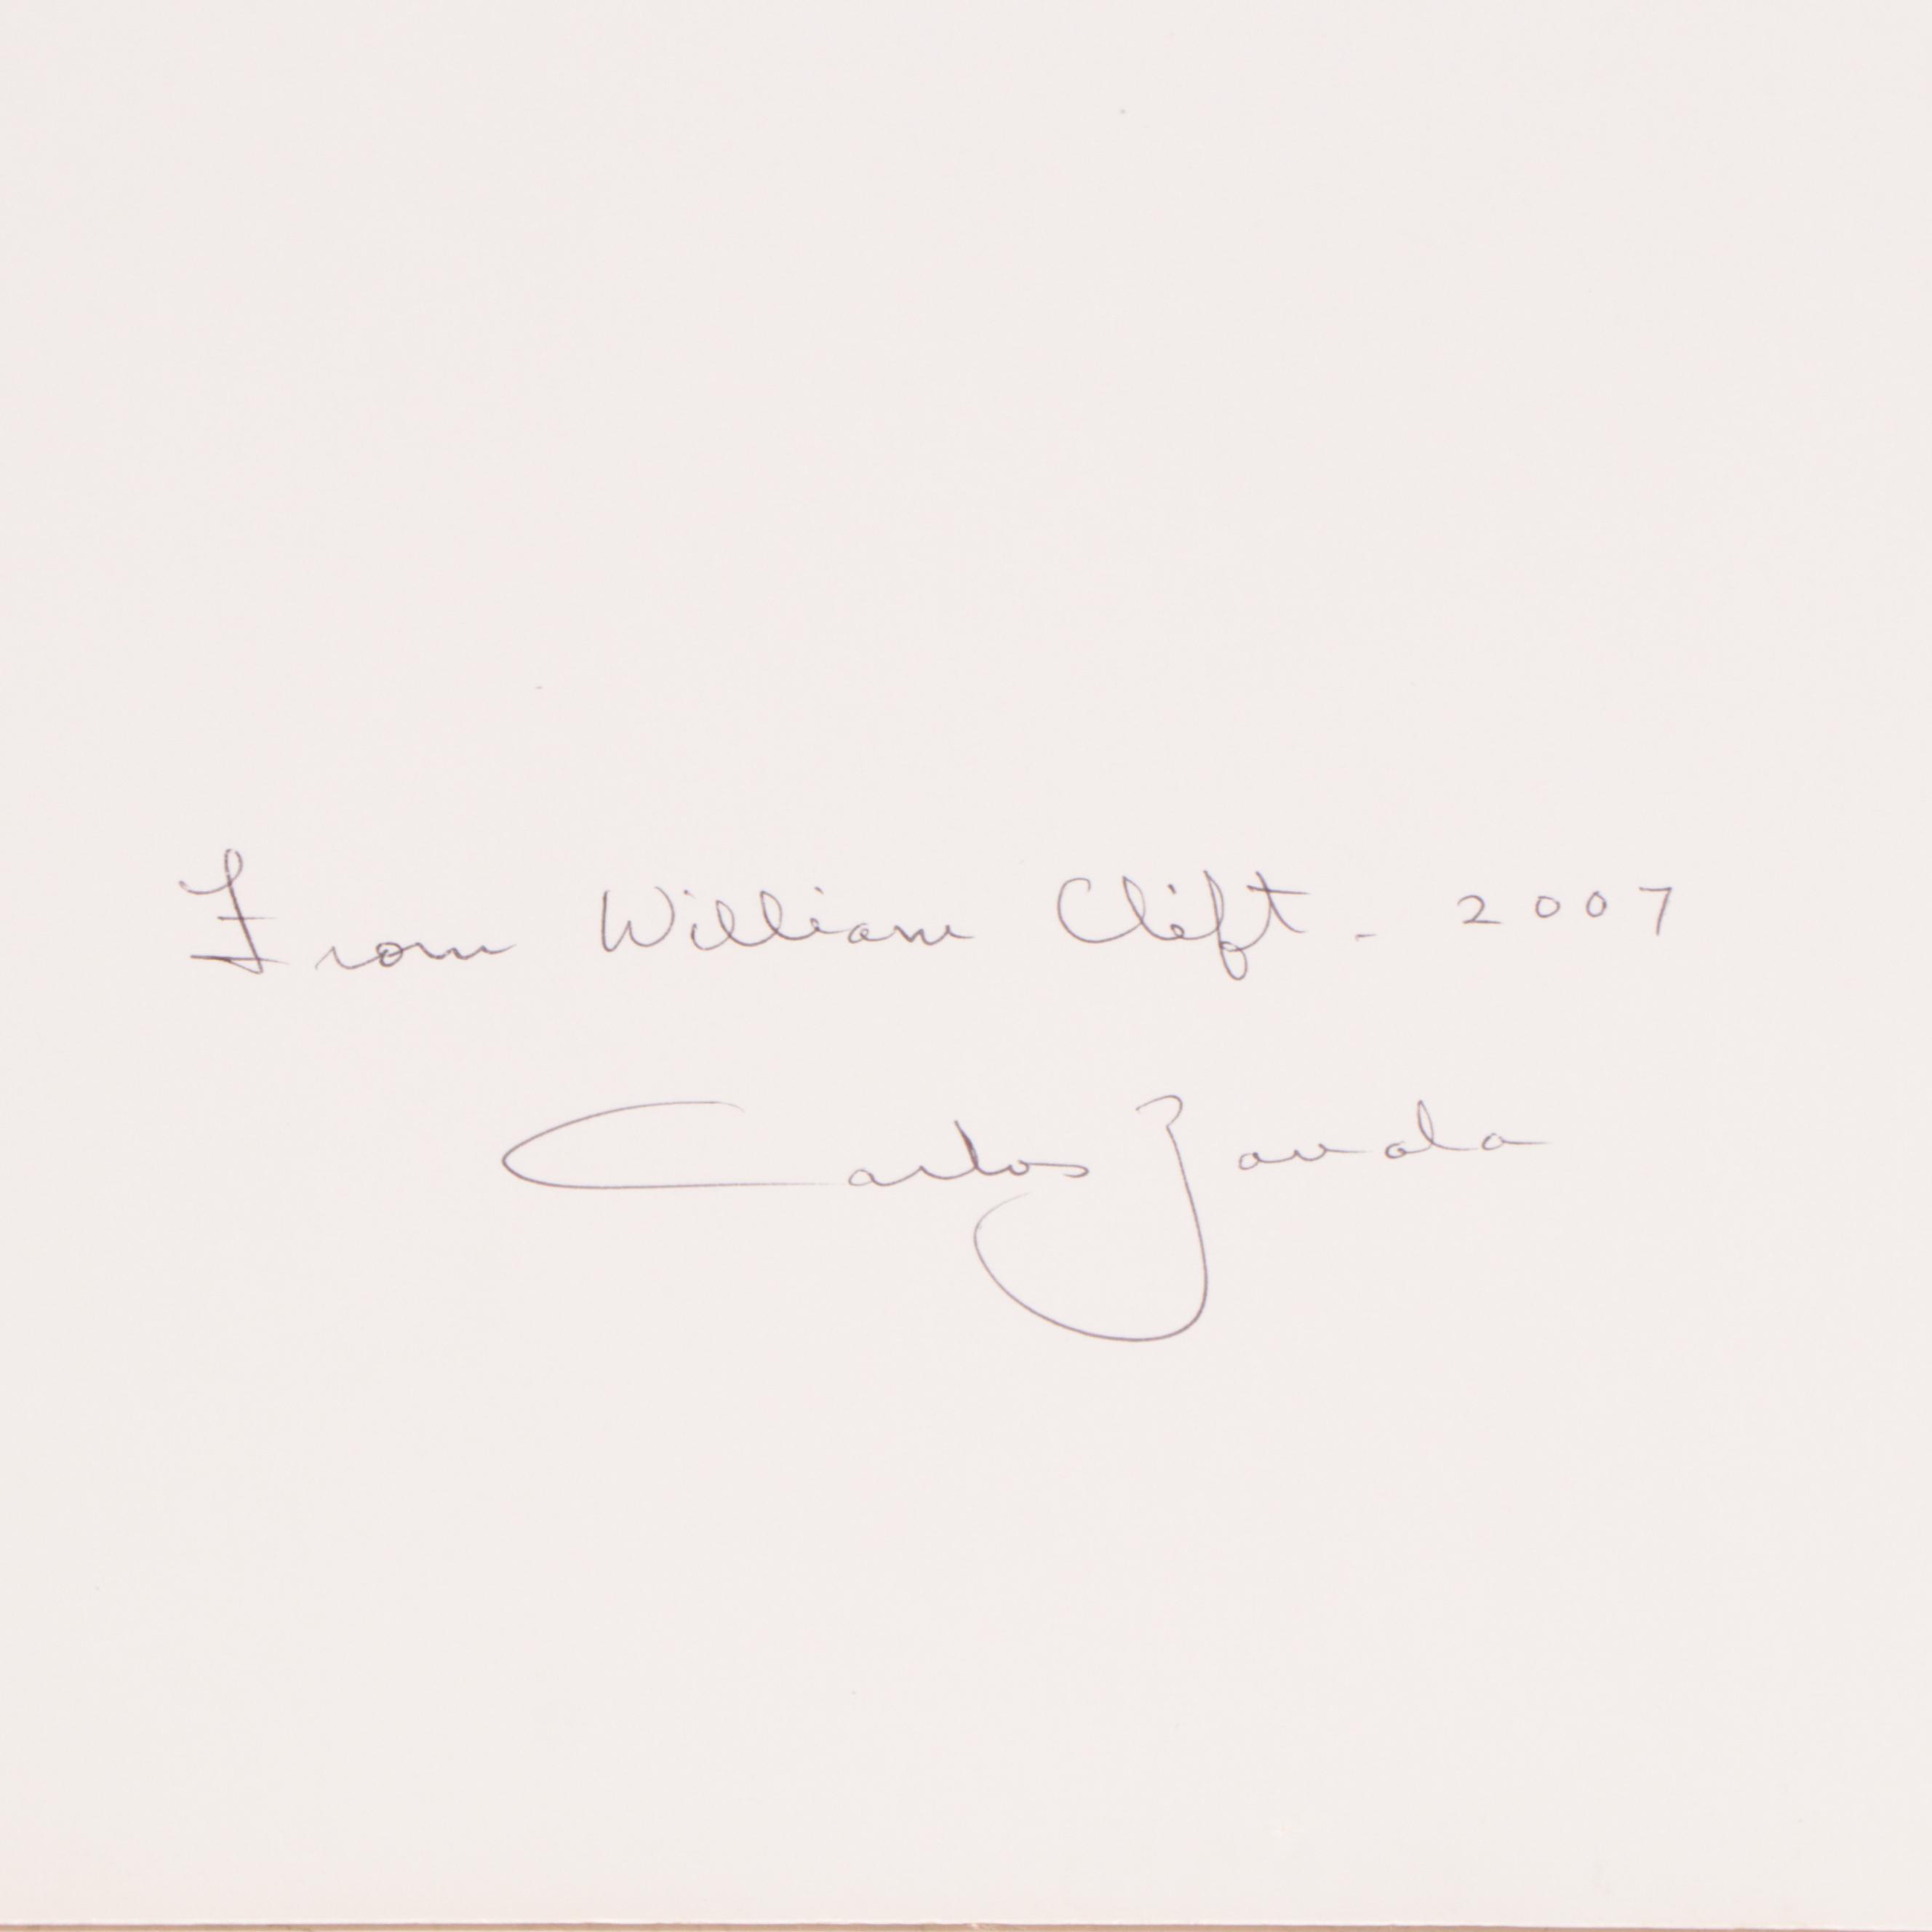 From William Clift - 2007
Carlos Zavala